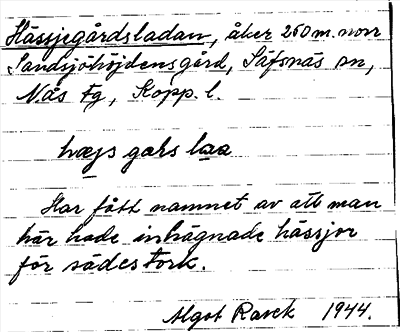 Hässjegårdsladan, åker 250 m. norr
Sandsjöhöjdens gård, Säfsnäs sn,
Nås fg, Kopp. l.
hæjs gaks laa
Har fått namnet av att man
här hade inhägnade hässjor
för sädestork.
Algot Rasck 1944.